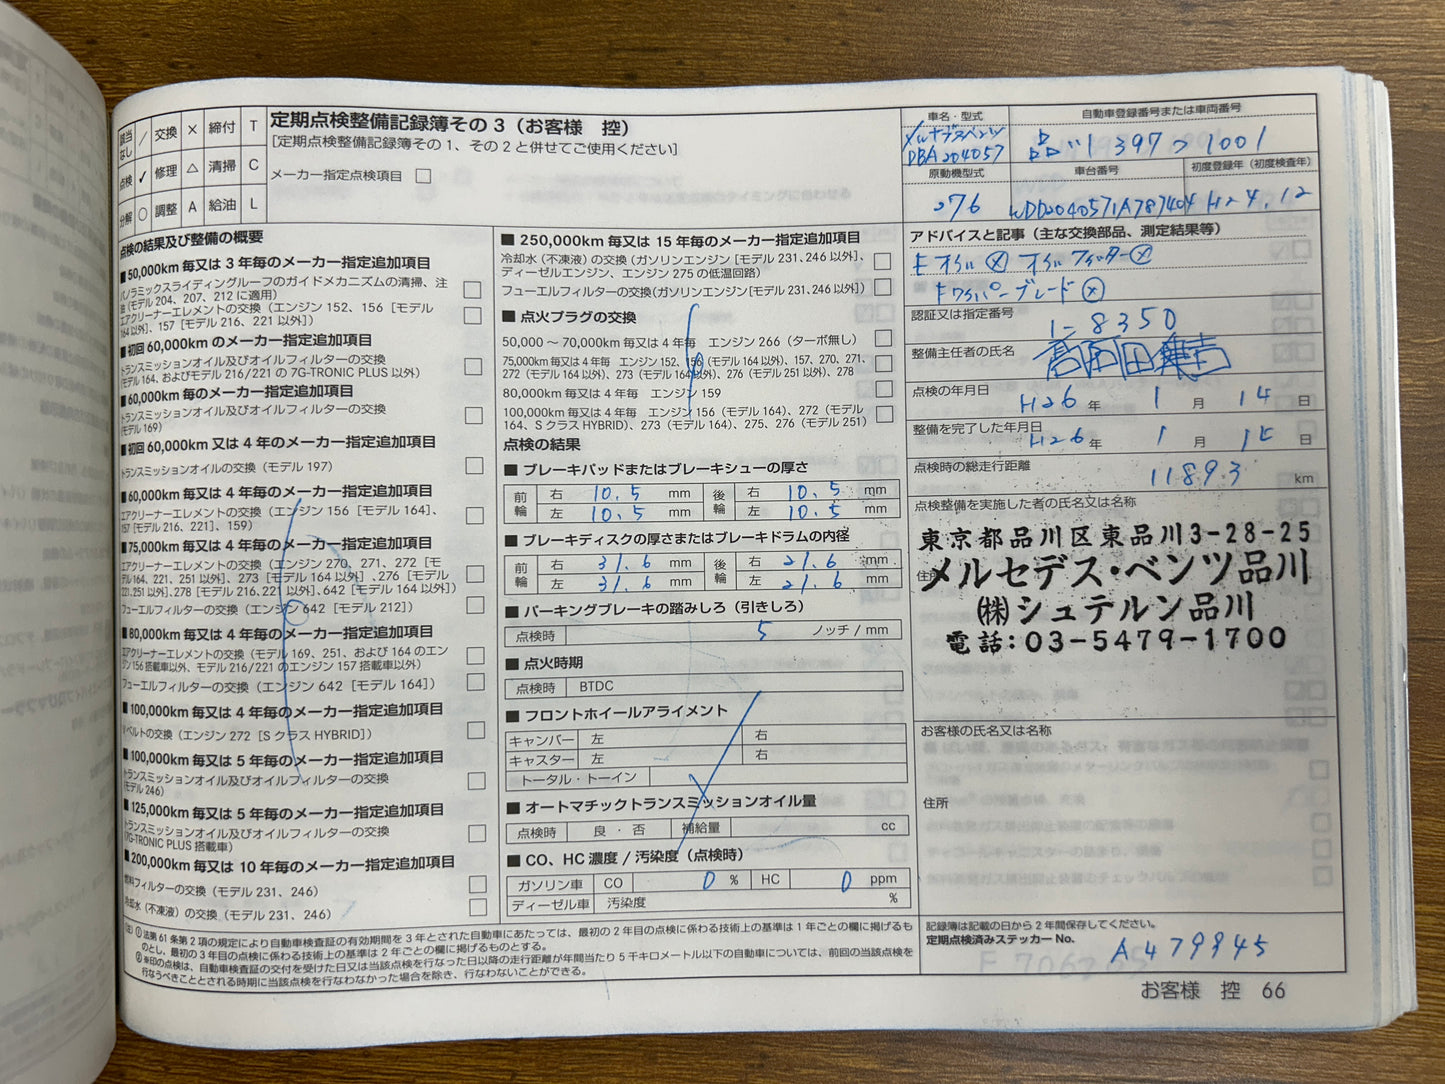 該当なし ／ 交換 × 締付 T
点検 ✓ 修理 △ 清掃 C
分解 ○ 調整 A 給油 L
定期点検整備記録簿その３（お客様　控）
［定期点検整備記録簿その１、その２と併せてご使用ください］
メーカー指定点検項目 □
車名・型式
メルセデスベンツ
DBA204057
自動車登録番号または車両番号
原動機型式
276
車台番号
WDD2040571A787404
初度登録年（初度検査年）
H24.12
点検の結果及び整備の概要
■ 50,000km 毎又は 3 年毎のメーカー指定追加項目
パノラミックスライディングルーフのガイドメカニズムの清掃、注油（モデル 204、207、212 に適用）
エアクリーナーエレメントの交換（エンジン 152、156［モデル 164 以外］、157［モデル 216、221 以外］）
■ 初回 60,000km のメーカー指定追加項目
トランスミッションオイル及びオイルフィルターの交換
（モデル 164、およびモデル 216/221 の 7G-TRONIC PLUS 以外）
■ 60,000km 毎のメーカー指定追加項目
トランスミッションオイル及びオイルフィルターの交換
（モデル 169）
■ 初回 60,000km 又は 4 年のメーカー指定追加項目
トランスミッションオイルの交換（モデル 197）
■ 60,000km 毎又は 4 年毎のメーカー指定追加項目
エアクリーナーエレメントの交換（エンジン 156［モデル 164］、
157［モデル 216、221］、159）
■ 75,000km 毎又は 4 年毎のメーカー指定追加項目
エアクリーナーエレメントの交換（エンジン 270、271、272［モデル164、221、251 以外］、273［モデル 164 以外］、276［モデル221、251 以外］、278［モデル 216、221 以外］、642［モデル 164 以外］）
フューエルフィルターの交換（エンジン 642［モデル 212］）
■ 80,000km 毎又は 4 年毎のメーカー指定追加項目
エアクリーナーエレメントの交換（モデル 169、251、および 164 のエンジン 156 搭載車以外、モデル 216/221 のエンジン 157 搭載車以外）
フューエルフィルターの交換（エンジン 642［モデル 164］）
■ 100,000km 毎又は 4 年毎のメーカー指定追加項目
Vベルトの交換（エンジン 272［S クラス HYBRID］）
■ 100,000km 毎又は 5 年毎のメーカー指定追加項目
トランスミッションオイル及びオイルフィルターの交換
（モデル 246）
■ 125,000km 毎又は 5 年毎のメーカー指定追加項目
トランスミッションオイル及びオイルフィルターの交換
（7G-TRONIC PLUS 搭載車）
■ 200,000km 毎又は 10 年毎のメーカー指定追加項目
燃料フィルターの交換（モデル 231、246）
冷却水（不凍液）の交換（モデル 231、246）
■ 250,000km 毎又は 15 年毎のメーカー指定追加項目
冷却水（不凍液）の交換（ガソリンエンジン［モデル 231、246 以外］、
ディーゼルエンジン、エンジン 275 の低温回路）
フューエルフィルターの交換（ガソリンエンジン［モデル 231、246 以外］）
■ 点火プラグの交換
50,000 ～ 70,000km 毎又は 4 年毎　エンジン 266（ターボ無し）
75,000km 毎又は 4 年毎　エンジン 152、156（モデル 164 以外）、157、270、271、
272（モデル 164 以外）、273（モデル 164 以外）、276（モデル 251 以外）、278
80,000km 毎又は 4 年毎　エンジン 159
100,000km 毎又は 4 年毎　エンジン 156（モデル 164）、272（モデル
164、S クラス HYBRID）、273（モデル 164）、275、276（モデル 251）
点検の結果
■ ブレーキパッドまたはブレーキシューの厚さ
前輪 右 10.5 mm 後輪 右 10.5 mm
左 10.5 mm 左 10.5 mm
■ ブレーキディスクの厚さまたはブレーキドラムの内径
前輪 右 31.6 mm 後輪 右 21.6 mm
左 31.6 mm 左 21.6 mm
■ パーキングブレーキの踏みしろ（引きしろ）
点検時 5 ノッチ / mm
■ 点火時期
点検時 BTDC
■ フロントホイールアライメント
キャンバー 左 右
キャスター 左 右
トータル・トーイン
■ オートマチックトランスミッションオイル量
点検時 良 ・ 否 補給量 cc
■ CO、HC 濃度 / 汚染度（点検時）
ガソリン車 CO 0 % HC 0 ppm
ディーゼル車 汚染度 %
アドバイスと記事（主な交換部品、測定結果等）
オイル ⊗ オイルフィルター ⊗
ワイパーブレード ⊗
認証又は指定番号
1-8350
整備主任者の氏名
点検の年月日
H26 年 1 月 14 日
整備を完了した年月日
H26 年 1 月 15 日
点検時の総走行距離
11893 km
点検整備を実施した者の氏名又は名称
東京都品川区東品川3-28-25
住所
メルセデス・ベンツ品川
㈱シュテルン品川
電話：03-5479-1700
お客様の氏名又は名称
住所
（注）① 法第 61 条第 2 項の規定により自動車検査証の有効期間を 3 年とされた自動車にあたっては、最初の 2 年目の点検に係わる技術上の基準は 1 年ごとの欄に掲げるものとし、最初の 3 年目の点検に係わる技術上の基準は 2 年ごとの欄に掲げるものとする。
② ※印の点検は、自動車検査証の交付を受けた日又は当該点検を行なった日以降の走行距離が年間当たり 5 千キロメートル以下の自動車については、前回の当該点検を行なうべきこととされる時期に当該点検を行なわなかった場合を除き、行なわないことができる。
記録簿は記載の日から 2 年間保存してください。
定期点検済みステッカー No.
A479945
お客様　控　66